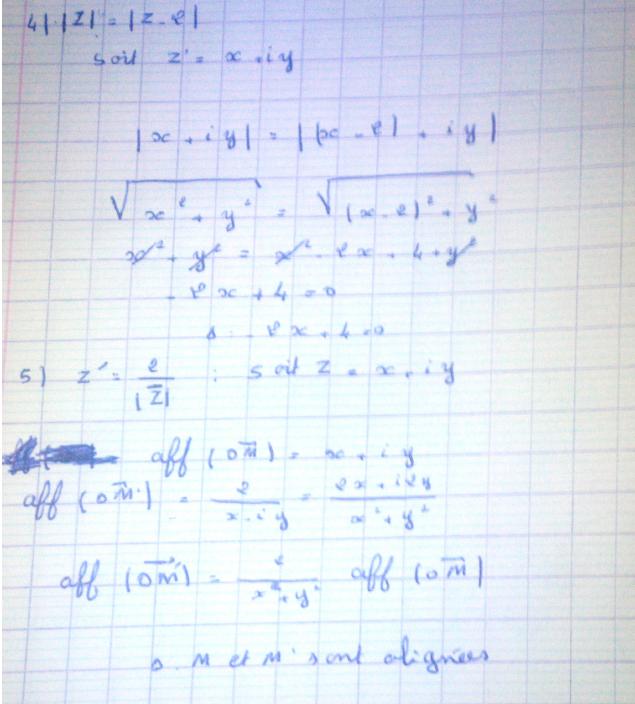 4) |Z| = |Z - 2|
soit z = x + iy
|x + iy| = |(x - 2) + iy|
√(x² + y²) = √((x - 2)² + y²)
x² + y² = x² - 2x + 4 + y²
- 2x + 4 = 0
Δ : - 2x + 4 = 0
5) z' = 2/|Z̅| : soit Z = x + iy
aff (OM) = x + iy
aff (OM') = 2/(x - iy) = (2x + i2y)/(x² + y²)
aff (OM') = 2/(x² + y²) aff (OM)
O. M et M' sont alignées